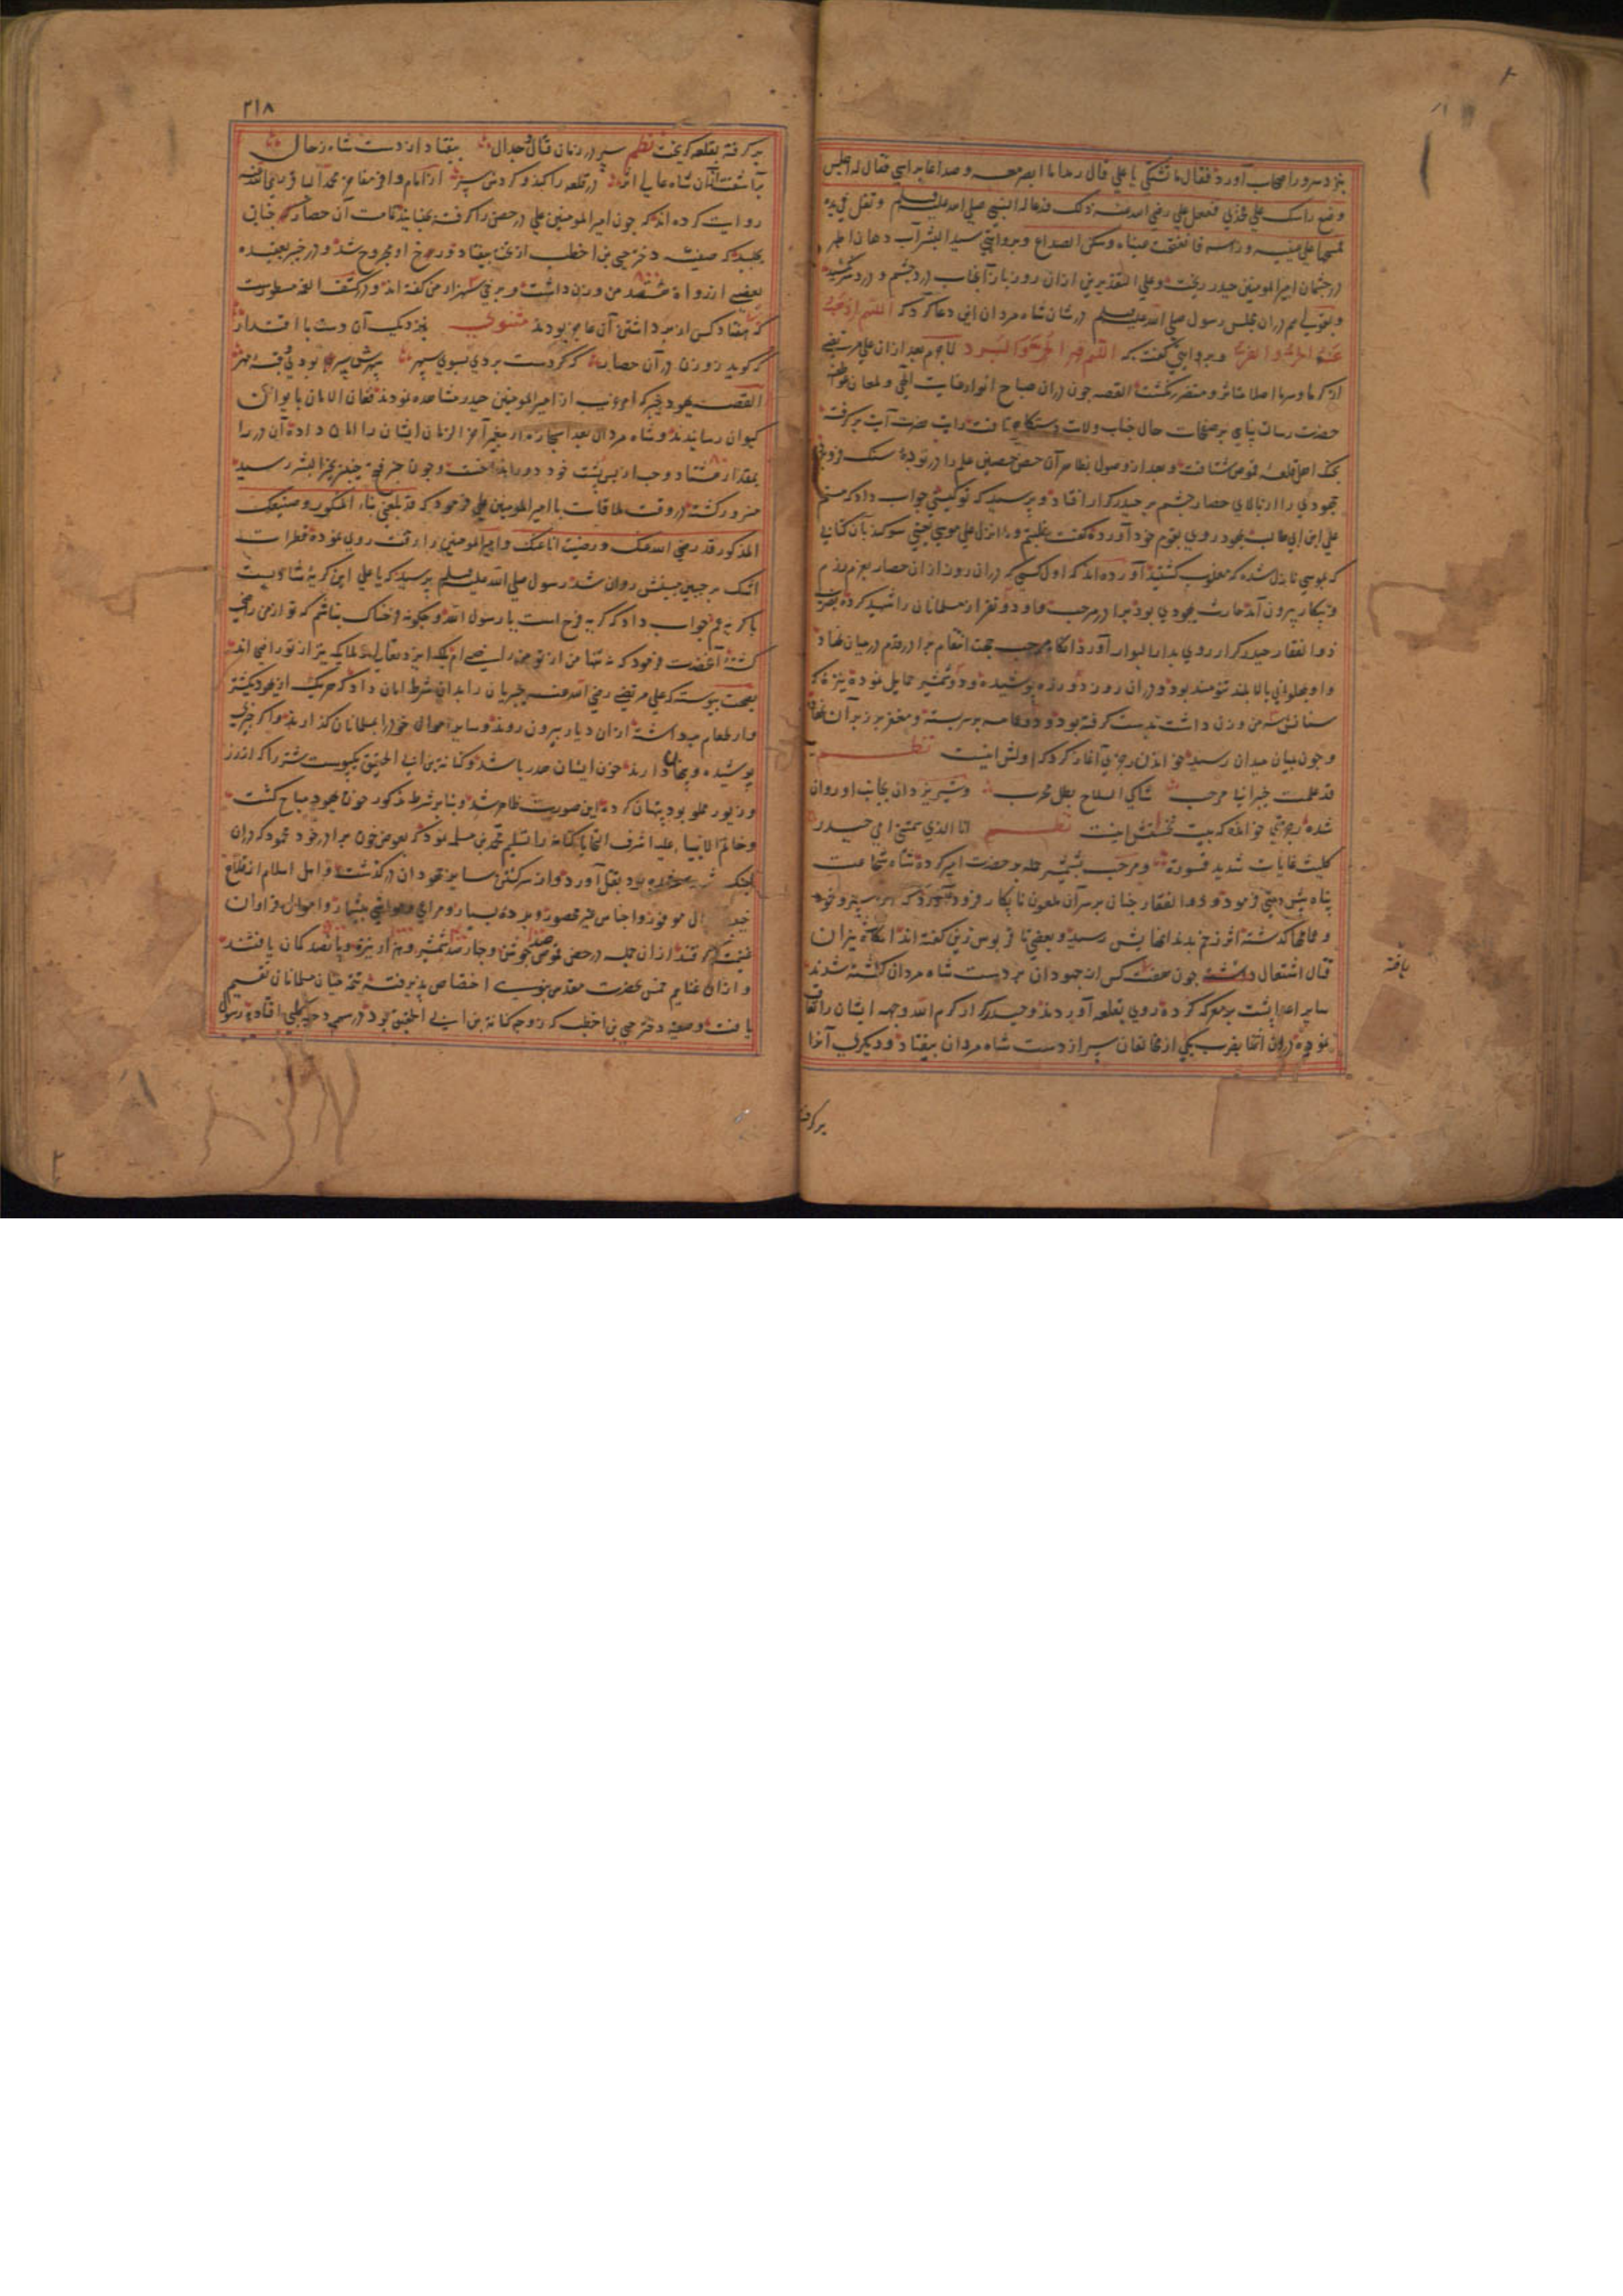 نزد سرور اصحاب آورد فقال ما تشتکی یا علی قال رمدا ما ابصر معه و صداعا براسی فقال له اجلس
وضع راسک علی فخذی ففعل علی رضی الله عنه ذلک فدعا له النبی صلی الله علیه وسلم و تفل فی یده
فمسحها علی عینیه و راسه فانفتحت عیناه و سکن الصداع و بروایتی سید البشر آب دهان اطهر
در چشمان امیرالمومنین حیدر ریخت و علی التقدیرین ازان روز باز آنجناب درد چشم و درد سر نکشید
و بقولی هم دران مجلس رسول صلی الله علیه وسلم در شان شاه مردان این دعا کرد که اللهم اذهب
عنه الحر و القر و بروایتی گفت که اللهم قه الحر و البرد لاجرم بعد ازان علی مرتضی
از گرما و سرما اصلا متاثر و متضرر نگشت القصه چون دران صباح انوار عنایت الهی و لمعان عواطف
حضرت رسالت پناهی بر صفحات حال جناب ولایت دستگاه تافت رایت نصرت آیت برگرفته
بجنگ اهل قلعه قموص شتافت و بعد از وصول بظاهر آن حصن حصین علم را در توده سنگ فرو برد
جهودی را از بالای حصار چشم بر حیدر کرار افتاد و پرسید که تو کیستی جواب داد که منم
علی ابن ابی طالب یهود روی بقوم خود آورده گفت غلبتم و ما انزل علی موسی یعنی سوکند بآن کتابی
که بموسی نازل شده که مغلوب گشتید آورده اند که اول کسی که دران روز ازان حصار بعزم رزم
و پیکار بیرون آمد حارث یهودی بود برادر مرحب و او دو نفر از مسلمانان را شهید کرده بضرب
ذوالفقار حیدر کرار روی بدار البوار آورد انگاه مرحب بجهت انتقام برادر قدم در میدان نهاد
و او پهلوانی بالا بلند تنومند بود و دران روز دو زره پوشیده و دو شمشیر حمایل نموده نیزه که
سنانش سه من وزن داشت بدست گرفته بود و دو عمامه بر سر بسته و مغفر بر زبر آن نهاده
و چون بمیان میدان رسید بخواندن رجزی آغاز کرد که اولش اینست نظم
قد علمت خیبر انی مرحب شاکی السلاح بطل مجرب و شیر یزدان بجانب او روان
شده رجزی خواند که بیت نخستینش اینست نظم انا الذی سمتنی امی حیدره
کلیث غابات شدید قسورة و مرحب بشمشیر حمله بر حضرت امیر کرده شاه شجاعت
پناه پیش دستی فرمود و ذوالفقار چنان بر سر آن ملعون نابکار فرود آورد که از سپر و خود
و عمامها گذشته اثر زخم بدندانهایش رسید و بعضی تا قربوس زین گفته اند انگاه نیران
قتال اشتعال داشته چون هفت کس از جهودان بر دست شاه مردان کشته شدند
سایر اعدا پشت بر معرکه کرده روی بقلعه آوردند و حیدر کرار کرم الله وجهه ایشان را تعاقب
نموده دران اثنا بضرب یکی از مخالفان سپر از دست شاه مردان بیفتاد و دیگری آنرا
یافته
برگرفته
۲۱۸
برگرفته بقلعه گریخت نظم سپر در زمان قتال و جدال بیفتاد از دست شاه رجال
برآشفت ازان شاه عالی اثر در قلعه را کند و کردش سپر از امام وافر مفاخر محمد الباقر رضی الله عنه
روایت کرده اند که چون امیرالمومنین علی در حصن را گرفته بجنبانید تمامت آن حصار چنان
بجنبید که صفیه دختر حیی بن اخطب از تخت بیفتاد و رخ او مجروح شد و در خیبر بعقیده
بعضی از رواة هشتصد من وزن داشت و برخی سه هزار من گفته اند و در کشف الغمه مسطورست
که هفتاد کس از برداشتن آن عاجز بودند مثنوی بنزدیک آن دست با اقتدار
گر کوید روزن در آن حصار گر کردست بردی بسوی سپهر بپرش سپر بودی قبه مهر
القصه یهود خیبر که امر غریب از امیرالمومنین حیدر مشاهده نمودند فغان الامان بایوان
کیوان رسانیدند و شاه مردان بعد استجازه از پیغمبر آخر الزمان ایشان را امان داده آن در را
بمقدار هشتاد وجب از پس پشت خود دور انداخت و چون خبر فتح خیبر بخیر البشر رسید
مسرور گشته در وقت ملاقات با امیرالمومنین علی فرمود که قد بلغنی بناءک المشکور و صنیعک
المذکور قد رضی الله عنک و رضیت انا عنک و امیرالمومنین را رقت روی نموده قطرات
اشک بر جبین مبینش روان شد رسول صلی الله علیه وسلم پرسید که یا علی این گریه شادیست
یا گریه غم جواب داد که گریه فرح است یا رسول الله و چگونه فرحناک نباشم که تو از من راضی
گشته آنحضرت فرمود که نه تنها من از تو من راضی ام بلکه ایزد تعالی و ملایکه نیز از تو راضی اند
بصحت پیوسته که علی مرتضی رضی الله عنه خیبریان را بدان شرط امان داد که هر یک از یهود یک شتر
وار طعام برداشته ازان دیار بیرون روند و سایر اموال خود را بمسلمانان گذارند و اگر چیزی
پوشیده و پنهان دارند خون ایشان هدر باشد و کنانة بن ابی الحقیق یک پوست شتر را که از زر
و زیور مملو بود پنهان کرده این صورت ظاهر شد و بنابر شرط مذکور خون یهود مباح گشت
و خاتم الانبیا علیه اشرف التحایا کنانه را تسلیم محمد بن مسلمه نمود تا بعوض خون برادر خود محمود که دران
جنگ شهید شده بود بقتل آورد و از سر کشتن سایر جهودان درگذشت و اهل اسلام از قلاع
خیبر اموال موفور و اجناس غیر محصور و برده بسیار و مراعی و مواشی بیشمار و اموال فراوان
غنیمت گرفتند ازان جمله در حصن قموص صد جوشن و چهارصد شمشیر و هزار نیزه و پانصد کمان یافتند
و ازان غنایم خمس بحضرت مقدس نبوی اختصاص پذیرفته تتمه میان مسلمانان تقسیم
یافت و صفیه دختر حیی بن اخطب که زوجه کنانة بن ابی الحقیق بود در سهم دحیه کلبی افتاده رسول